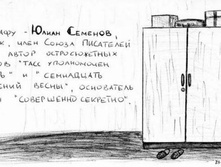 - Юлиан Семенов,
член Союза Писателей
автор остросюжетных
"ТАСС уполномочен
и "Семнадцать
весны", основатель
"Совершенно секретно",